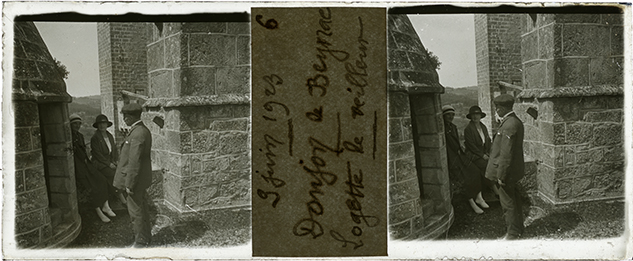 6
9 juin 1923
Donjon de Beynac
Logette de veilleur